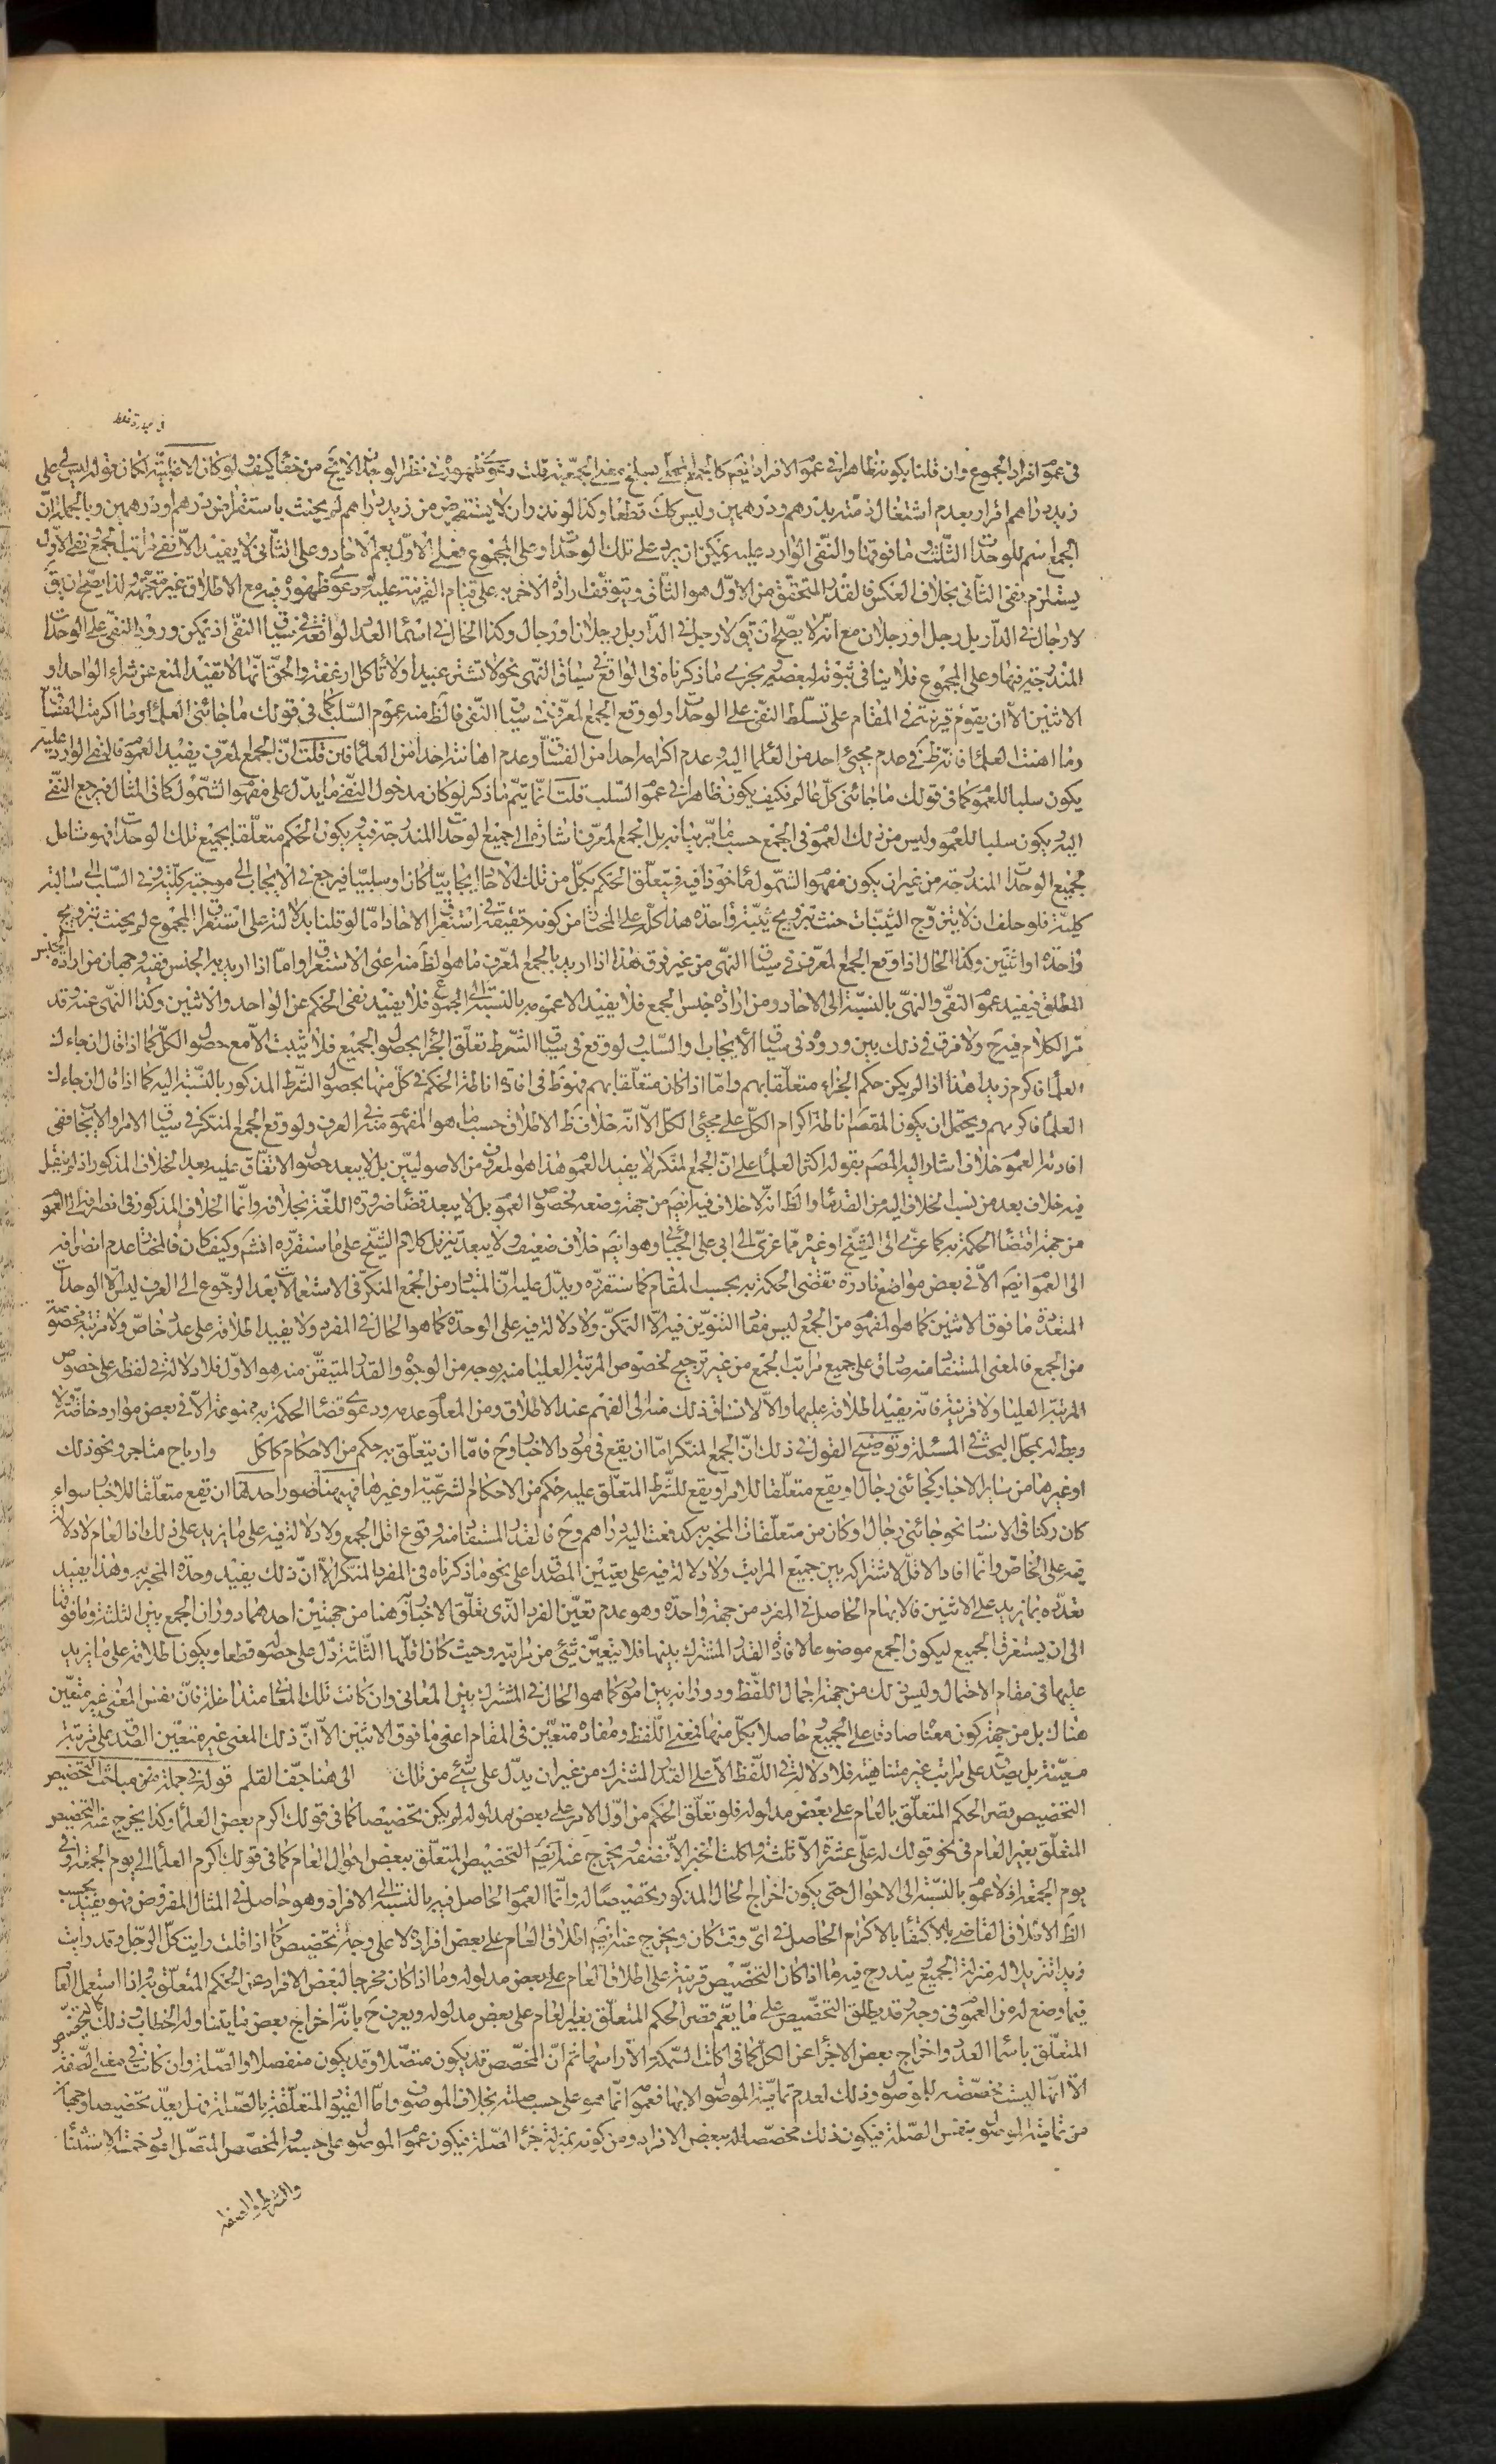 في عموم افراد الجموع وان قلنا بكونه ظاهرا في عموم الافراد ايضم كيف لو كان الاظهر لكان قوله ليس لى على
زيد دراهم اقرارا بعدم اشتغال ذمته بدرهم ودرهمين وليس كك قطعا وكذا لو نذر ان لا يستقرض من زيد دراهم لم يحنث باستقراض درهم او درهمين وبالجملة ان
الجمع اسم للوحدات الثلث وما فوقها والنفى الوارد عليه يمكن ان يرد على تلك الوحدات وعلى المجموع فعلى الاول يعم الاحاد وعلى الثانى لا يفيد الا نفى مراتب الجمع ونفى الاول
يستلزم نفى الثانى بخلاف العكس فالقدر المتحقق من الاول هو الثانى ويتوقف ارادة الاخر به على قيام القرينة عليه ودعوى ظهوره فيه مع الاطلاق غير متجهة ولذا يصح ان يق
لا رجال في الدار بل رجل او رجلان مع انه لا يصح ان يق لا رجل في الدار بل رجلان او رجال وكذا الحال في اسماء العدد الواقعة في سياق النفى اذ يمكن ورود النفى على الوحدات
المندرجة فيها وعلى المجموع فلا ينافى ثبوته لبعضه ويجرى ما ذكرناه في الواقع في سياق النهى نحو لا تشتر عبيدا ولا تاكل ارغفة والحق انها لا تفيد المنع عن شراء الواحد او
الاثنين الا ان يقوم قرينة في المقام على تسلط النفى على الوحدات ولو وقع الجمع المعرف في سياق النفى فالظ منه عموم السلب كما في قولك ما جائنى العلماء وما اكرمت الفساق
وما اهنت العلماء فانه ظ في عدم مجيئ احد من العلماء اليه وعدم اكرامه احدا من الفساق وعدم اهانته احدا من العلماء فان قلت ان الجمع المعرف يفيد العموم فالنفى الوارد عليه
يكون سلبا للعموم كما في قولك ما جائنى كل عالم فكيف يكون ظاهرا في عموم السلب قلت انما يتم ما ذكر لو كان مدخول النفى ما يدل على مفهوم الشمول كما في المثال فيرجع النفى
اليه ويكون سلبا للعموم وليس من ذلك العموم في الجمع حسب ما مر بيانه بل الجمع المعرف اشارة الى جميع الوحدات المندرجة فيه ويكون الحكم متعلقا بجميع تلك الوحدات فهو شامل
لجميع الوحدات المندرجة من غير ان يكون مفهوم الشمول ماخوذا فيه فيتعلق الحكم بكل من تلك الاحاد ايجابيا كان او سلبيا فيرجع في الايجاب الى موجبة كلية وفي السلب الى سالبة
كلية فلو حلف ان لا يتزوج الثيبات حنث بتزويج ثيبة واحدة هذا كله على المختار من كونه حقيقة في استغراق الاحاد اما لو قلنا بدلالته على استغراق المجموع لم يحنث بتزويج
واحدة او اثنتين وكذا الحال اذا وقع الجمع المعرف في سياق النهى من غير فرق هذا اذا اريد بالجمع المعرف ما هو الظ منه اعنى الاستغراق واما اذا اريد به الجنس ففيه وجهان من ارادة الجنس
المطلق فيفيد عموم النفى والنهى بالنسبة الى الاحاد ومن ارادة جنس الجمع فلا يفيد الا عمومه بالنسبة الى الجموع فلا يفيد نفى الحكم عن الواحد والاثنين وكذا النهى عنه وقد
مر الكلام فيه ح ولا فرق في ذلك بين وروده في سياق الايجاب والسلب ولو وقع في سياق الشرط تعلق الجزاء بحصول الجميع فلا يثبت الا مع حصول الكل كما اذا قال ان جاءك
العلماء فاكرم زيدا هذا اذا لم يكن حكم الجزاء متعلقا بهم واما اذا كان متعلقا بهم فهو ظ في افادة اناطة الحكم في كل منها بحصول الشرط المذكور بالنسبة اليه كما اذا قال ان جاءك
العلماء فاكرمهم ويحتمل ان يكون المقصم اناطة اكرام الكل على مجيئ الكل الا انه خلاف ظ الاطلاق حسب ما هو المفهوم منه في العرف ولو وقع الجمع المنكر في سياق الامر او الايجاب ففى
افادته العموم خلاف اشار اليه المصم بقوله اكثر العلماء على ان الجمع المنكر لا يفيد العموم هذا هو المعروف من الاصوليين بل لا يبعد حصول الاتفاق عليه بعد الخلاف المذكور اذ لم ينقل
فيه خلاف بعد من نسب الخلاف اليه من القدماء والظ انه لا خلاف فيه ايضم من جهة وضعه لخصوص العموم بل لا يبعد قضاء ضرورة اللغة بخلافه وانما الخلاف المذكور في انصرافه الى العموم
من جهة اقتضاء الحكمة به كما عزى الى الشيخ او غيره مما عزى الى ابى على الجبائى وهو ايضم خلاف ضعيف ولا يبعد تنزيل كلام الشيخ على ما سنقرره انشم وكيف كان فالمختار عدم انصرافه
الى العموم ايضم الا في بعض مواضع نادرة تقضى الحكمة به بحسب المقام كما سنقرره ويدل عليه ان المتبادر من الجمع المنكر في الاستعمالات بعد الرجوع الى العرف ليس الا الوحدات
المتعددة ما فوق الاثنين كما هو المفهوم من الجمع ليس مفاد التنوين فيه الا التمكن ولا دلالة فيه على الوحدة كما هو الحال في المفرد ولا يفيد اطلاقه على عدد خاص ولا مرتبة مخصوصة
من الجمع فالمعنى المستفاد منه صادق على جميع مراتب الجمع من غير ترجيح لخصوص المرتبة العليا منه بوجه من الوجوه والقدر المتيقن منه هو الاول فلا دلالة في لفظه على خصوص
المرتبة العليا ولا قرينة فانه يفيد اطلاقه عليها والا لانساق ذلك منه الى الفهم عند الاطلاق ومن المعلوم عدمه ودعوى قضاء الحكمة به ممنوعة الا في بعض موارد خاصة ولا
ربط له بمحل البحث في المسئلة وتوضيح القول في ذلك ان الجمع المنكر اما ان يقع في مورد الاخبار وح فاما ان يتعلق به حكم من الاحكام كاكل وارباح متاجر ونحو ذلك
او غيرها من ساير الاخبار كجائنى رجال او يقع متعلقا للامر او يقع للشرط المتعلق عليه حكم من الاحكام الشرعية او غيرها فههنا صور احدها ان يقع متعلقا للاخبار سواء
كان ركنا في الاسناد نحو جائنى رجال او كان من متعلقات المخبر به كدفعت اليه دراهم وح فالقدر المستفاد منه وقوع اقل الجمع ولا دلالة فيه على ما يزيد على ذلك اذ العام لا دلالة
فيه على الخاص وانما افاد الاقل لاشتراكه بين جميع المراتب ولا دلالة فيه على تعيين المصداق على نحو ما ذكرناه في المفرد المنكر الا ان ذلك يفيد وحدة المخبر به وهذا يفيد
تعدده بما يزيد على الاثنين فالابهام الحاصل في المفرد من جهة واحدة وهو عدم تعين الفرد الذى تعلق الاخبار به وهنا من جهتين احدهما دوران الجمع بين الثلثة وما فوقها
الى ان يستغرق الجميع ليكون الجمع موضوعا لافادة القدر المشترك بينها فلا يتعين شيئ من مراتبه وحيث كان اقلها الثلثة دل على حصوله قطعا ويكون اطلاقه على ما يزيد
عليها في مقام الاحتمال وليس ذلك من جهة اجمال اللفظ ودورانه بين امور كما هو الحال في المشترك بين المعانى وان كانت تلك المعانى متداخلة فان نفس المعنى غير متعين
هناك بل من جهة كون معناه صادقا على الجميع حاصلا بكل منها فمعنى اللفظ ومفاده متعين في المقام اعنى ما فوق الاثنين الا ان ذلك المعنى غير متعين الصدق على مرتبة
معينة بل يصدق على مراتب غير متناهية فلا دلالة في اللفظ الا على القدر المشترك من غير ان يدل على شيئ من تلك الى هنا جف القلم قوله في جملة من مباحث التخصيص
التخصيص قصر الحكم المتعلق بالعام على بعض مدلوله فلو تعلق الحكم من اول الامر على بعض مدلوله لم يكن تخصيصا كما في قولك اكرم بعض العلماء وكذا يخرج عنه التخصيص
المتعلق بغير العام في نحو قولك له على عشرة الا ثلثة واكلت الخبز الا نصفه ويخرج عنه ايضم التخصيص المتعلق ببعض احوال العام كما في قولك اكرم العلماء الى يوم الجمعة او في
يوم الجمعة اذ لا عموم بالنسبة الى الاحوال حتى يكون اخراج الحال المذكور تخصيصا له وانما العموم الحاصل فيه بالنسبة الى الافراد وهو حاصل في المثال المفروض فهو يفيد بحسب
الظ الاطلاق القاضى بالاكتفاء بالاكرام الحاصل في اى وقت كان ويخرج عنه ايضم اطلاق العام على بعض افراده لا على وجه تخصيص كما اذا قلت رايت كل الرجل وقد رايت
زيدا تنزيلا له منزلة الجميع يندرج فيه ما اذا كان التخصيص قرينة على اطلاق العام على بعض مدلوله وما اذا كان مخرجا لبعض الافراد عن الحكم المتعلق به اذا استعمل العام
فيما وضع له من العموم في وجه وقد يطلق التخصيص على ما يعم قصر الحكم المتعلق بغير العام على بعض مدلوله ويعرف ح بانه اخراج بعض ما يتناوله الخطاب وذلك كالتخصيص
المتعلق باسماء العدد واخراج بعض الاجزاء عن الكل كما في اكلت السمكة الا راسها ثم ان المخصص قد يكون متصلا وقد يكون منفصلا والصلة وان كانت في معنى الصفة
الا انها ليست مخصصة للموصول وذلك لعدم تمامية الموصول الا بها فعمومه انما هو على حسب صلته بخلاف الموصوف واما القيود المتعلقة بالصلة فهل يعد تخصيصا وجهان
من تمامية الموصول بنفس الصلة فيكون ذلك مخصصا له ببعض الافراد ومن كونه بمنزلة جزء الصلة فيكون عموم الموصول على حسبه والمخصص المتصل امور خمسة الاستثناء
والشرط والصفة